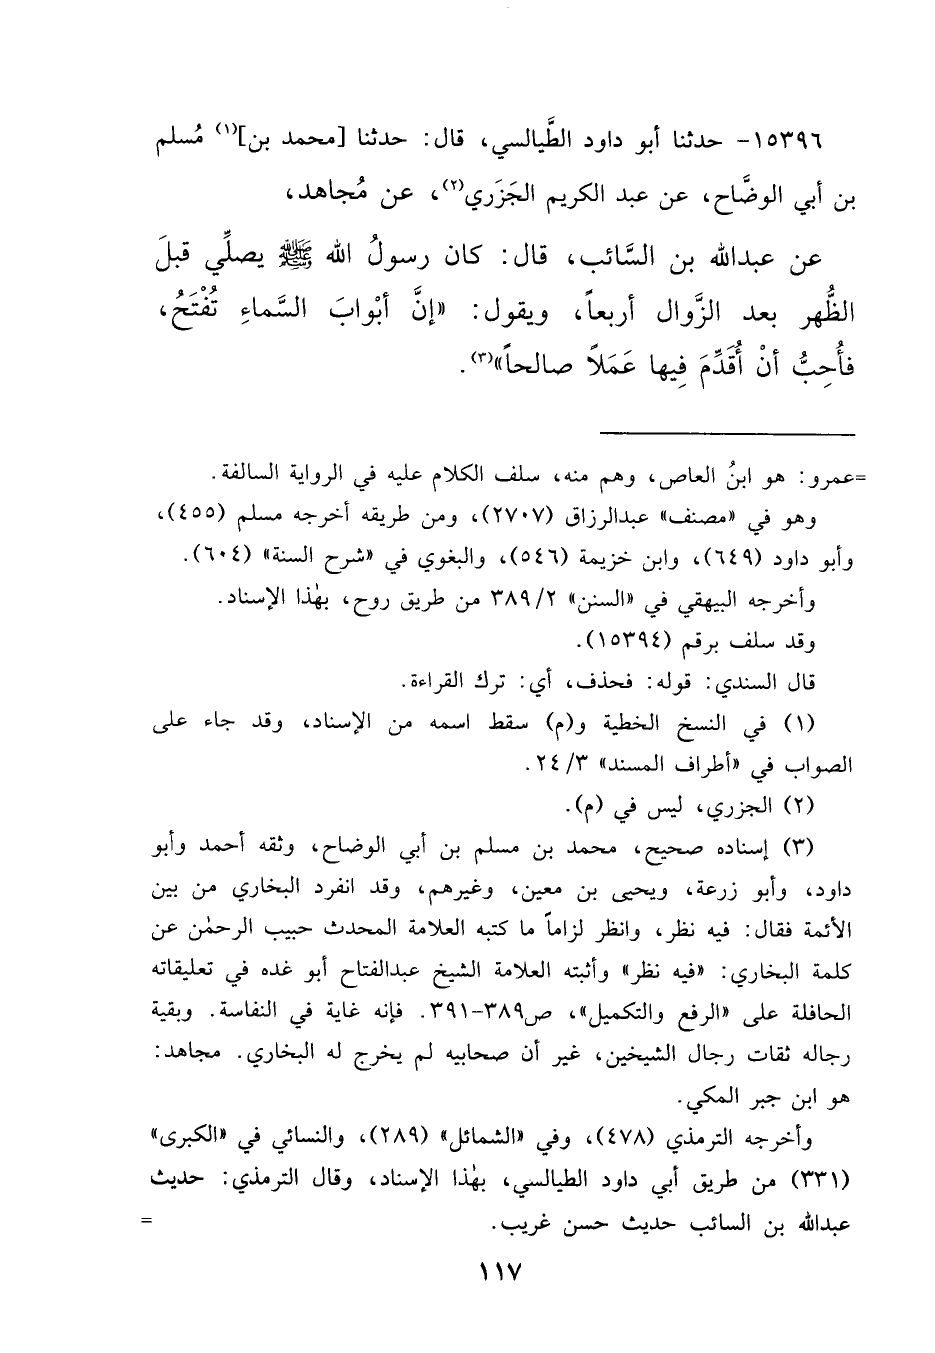 ١٥٣٩٦- حدثنا أبو داود الطَّيالسي، قال: حدثنا [محمد بن](١) مُسلم
بن أبي الوضَّاح، عن عبد الكريم الجَزَري(٢)، عن مُجاهد،
عن عبدالله بن السَّائب، قال: كان رسولُ الله ﷺ يصلِّي قبلَ
الظُّهر بعد الزَّوال أربعاً، ويقول: «إنَّ أبْوابَ السَّماءِ تُفْتَحُ،
فأُحِبُّ أنْ أُقَدِّمَ فِيها عَمَلاً صالحاً»(٣).
=عمرو: هو ابنُ العاص، وهم منه، سلف الكلام عليه في الرواية السالفة.
وهو في «مصنف» عبدالرزاق (٢٧٠٧)، ومن طريقه أخرجه مسلم (٤٥٥)،
وأبو داود (٦٤٩)، وابن خزيمة (٥٤٦)، والبغوي في «شرح السنة» (٦٠٤).
وأخرجه البيهقي في «السنن» ٣٨٩/٢ من طريق روح، بهٰذا الإسناد.
وقد سلف برقم (١٥٣٩٤).
قال السندي: قوله: فحذف، أي: ترك القراءة.
(١) في النسخ الخطية و(م) سقط اسمه من الإسناد، وقد جاء على
الصواب في «أطراف المسند» ٢٤/٣.
(٢) الجزري، ليس في (م).
(٣) إسناده صحيح، محمد بن مسلم بن أبي الوضاح، وثقه أحمد وأبو
داود، وأبو زرعة، ويحيى بن معين، وغيرهم، وقد انفرد البخاري من بين
الأئمة فقال: فيه نظر، وانظر لزاماً ما كتبه العلامة المحدث حبيب الرحمٰن عن
كلمة البخاري: «فيه نظر» وأثبته العلامة الشيخ عبدالفتاح أبو غده في تعليقاته
الحافلة على «الرفع والتكميل»، ص٣٨٩-٣٩١. فإنه غاية في النفاسة. وبقية
رجاله ثقات رجال الشيخين، غير أن صحابيه لم يخرج له البخاري. مجاهد:
هو ابن جبر المكي.
وأخرجه الترمذي (٤٧٨)، وفي «الشمائل» (٢٨٩)، والنسائي في «الكبرى»
(٣٣١) من طريق أبي داود الطيالسي، بهٰذا الإسناد، وقال الترمذي: حديث
عبدالله بن السائب حديث حسن غريب. =
١١٧